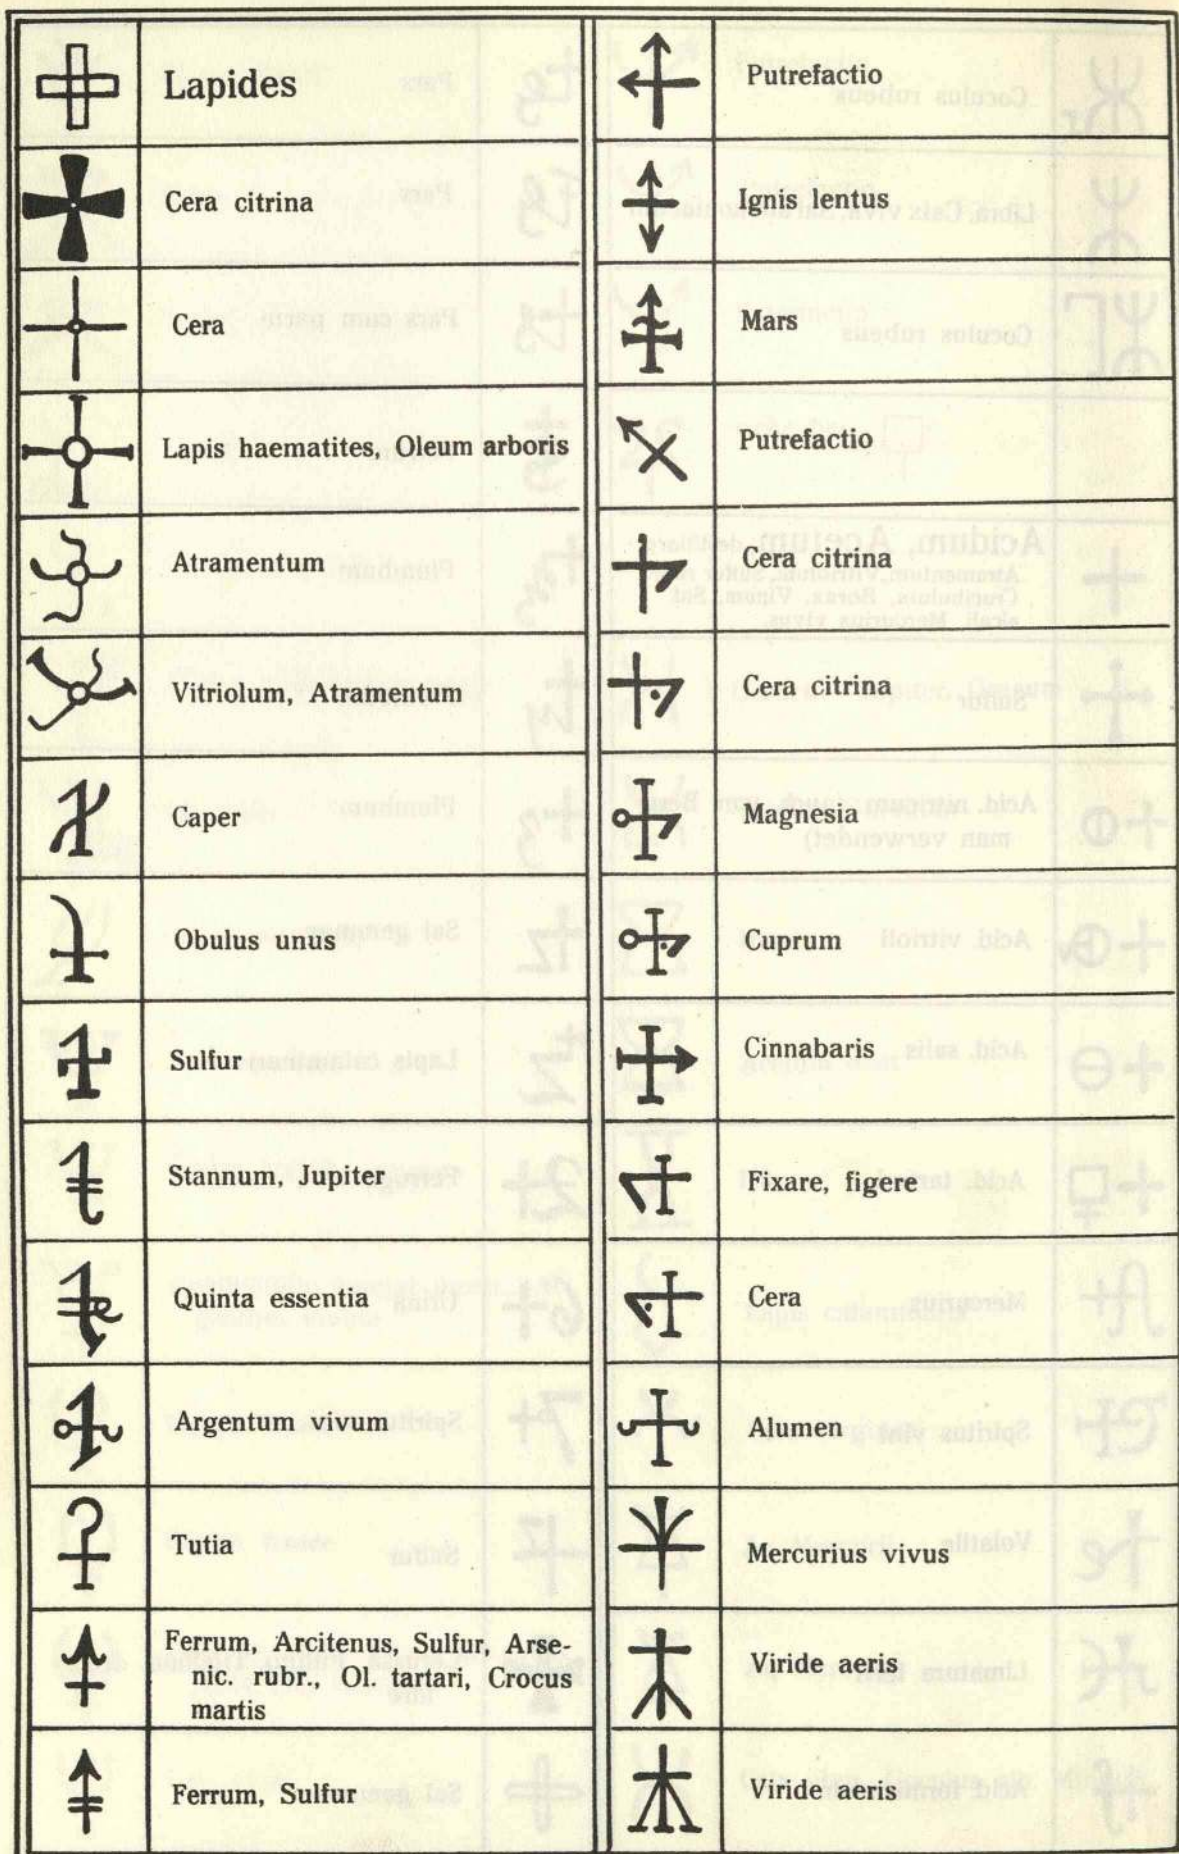 Lapides
Cera citrina
Cera
Lapis haematites, Oleum arboris
Atramentum
Vitriolum, Atramentum
Caper
Obulus unus
Sulfur
Stannum, Jupiter
Quinta essentia
Argentum vivum
Tutia
Ferrum, Arcitenus, Sulfur, Arse-
nic. rubr., Ol. tartari, Crocus
martis
Ferrum, Sulfur
Putrefactio
Ignis lentus
Mars
Putrefactio
Cera citrina
Cera citrina
Magnesia
Cuprum
Cinnabaris
Fixare, figere
Cera
Alumen
Mercurius vivus
Viride aeris
Viride aeris